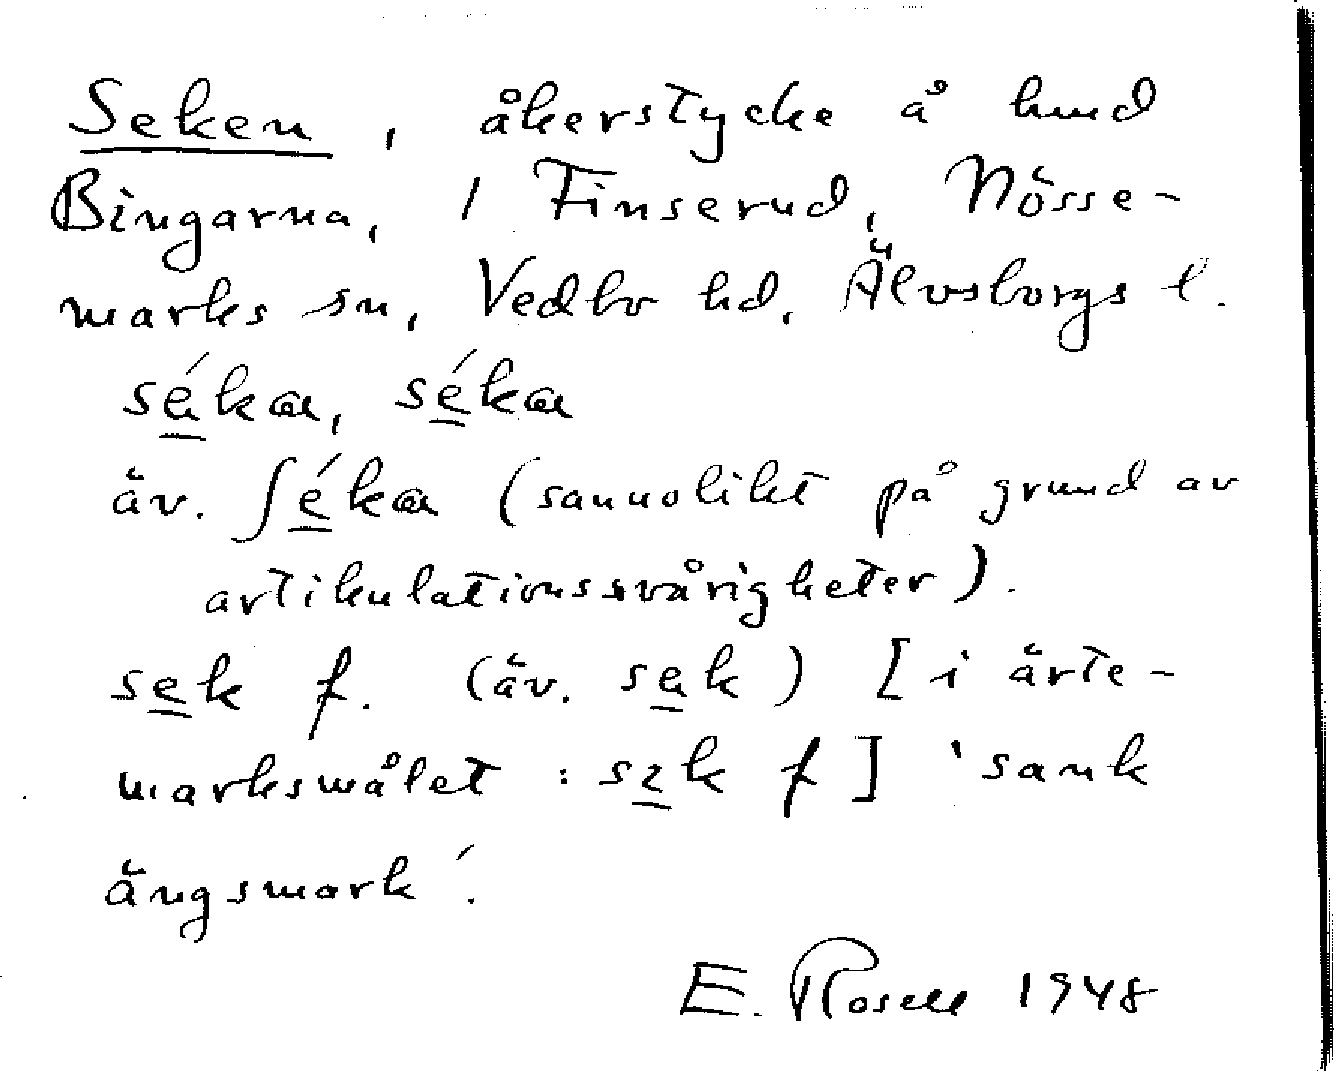 Seken, åkerstycke å hmd
Bingarna, 1 Finserud, Nösse-
marks sn, Vedbo hd, Älvsborgs l.
séka, séka
äv. ſéka (sannolikt på grund av
artikulationssvårigheter).
sek f. (äv. sek) [i ärte-
marksmålet: sɿk f] 'sank
ängsmark'.
E. Rosell 1948